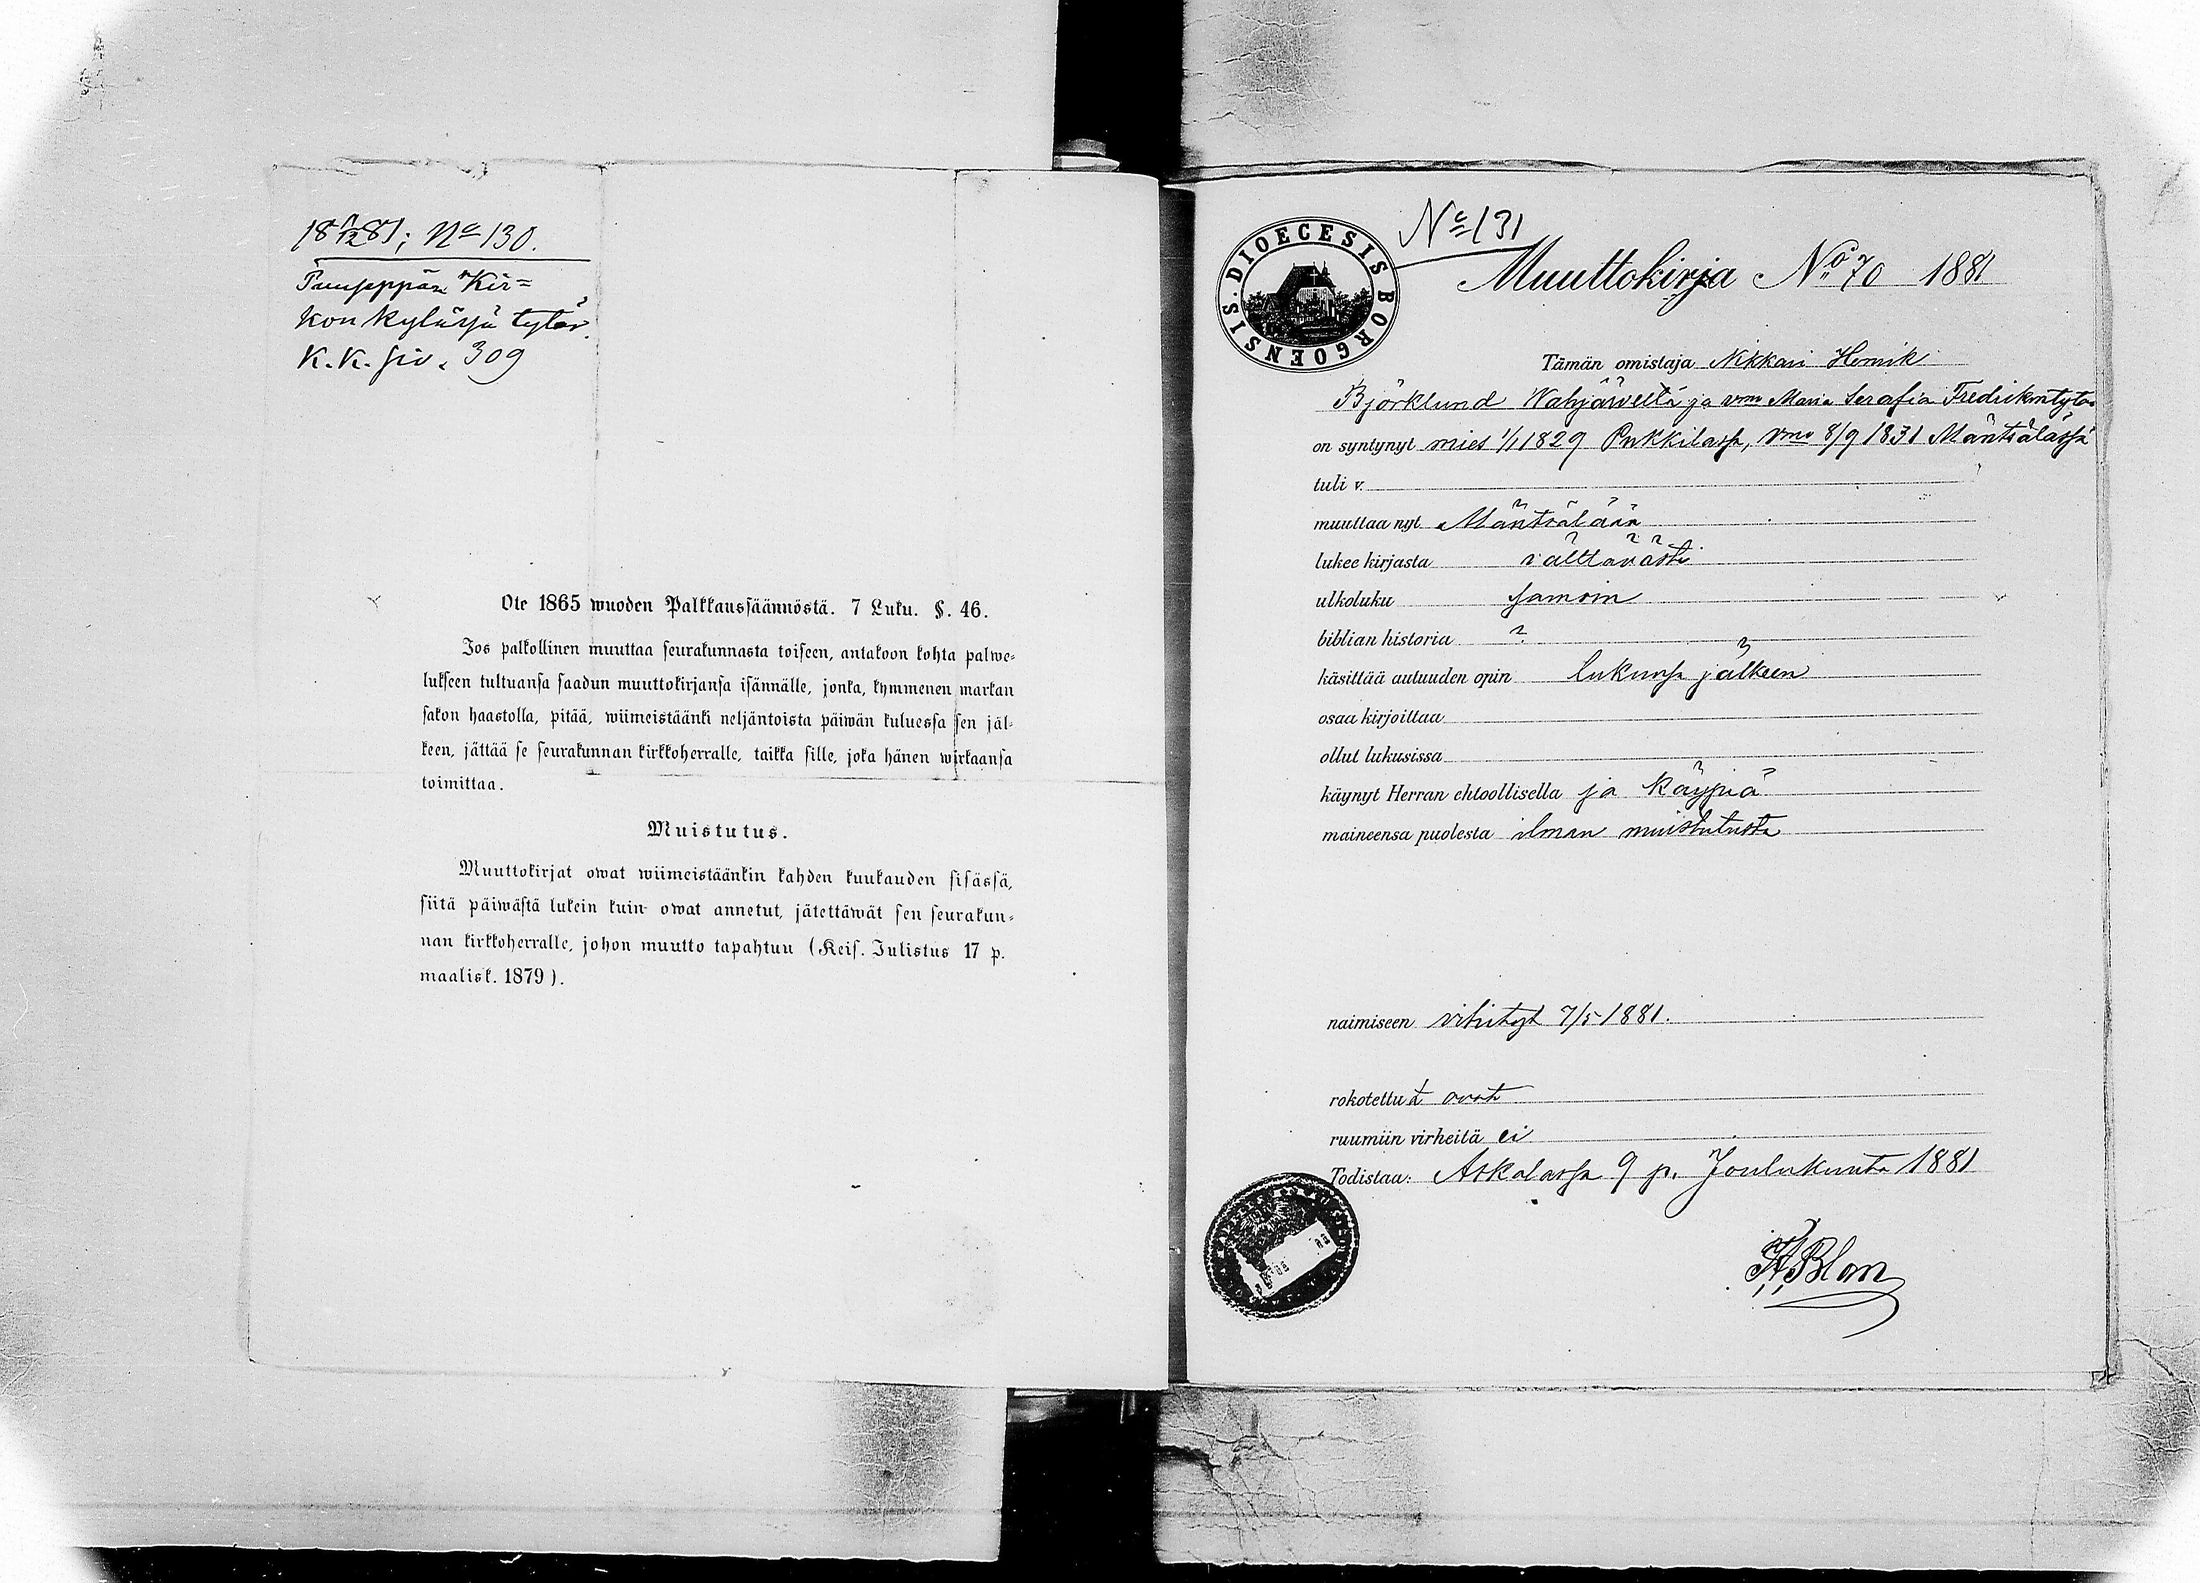 18 1/12 81; No 130.
Puuseppän Kir=
kon kylässä tytär.
K.K. siv. 309
Ote 1865 wuoden Palkkaussäännöstä. 7 Luku. §. 46.
Jos palkollinen muuttaa seurakunnasta toiseen, antakoon kohta palwe=
lukseen tultuansa saadun muuttokirjansa isännälle, jonka, kymmenen markan
sakon haastolla, pitää, wiimeistäänki neljäntoista päiwän kuluessa sen jäl=
keen, jättää se seurakunnan kirkkoherralle, taikka sille, joka hänen wirkaansa
toimittaa.
Muistutus.
Muuttokirjat owat wiimeistäänkin kahden kuukauden sisässä,
siitä päiwästä lukein kuin owat annetut, jätettäwät sen seurakun=
nan kirkkoherralle, johon muutto tapahtuu (Keis. Julistus 17 p.
maalisk. 1879).
No 131
DIOECESIS BORGOENSIS.
Muuttokirja No 70 1881
Tämän omistaja Nikkari Henrik
Björklund Wahjärveltä ja vmo Maria Serafia Fredrikintytär
on syntynyt mies 1/1 1829 Pukkilassa, vmo 8/9 1831 Mäntsälässä
tuli v.
muuttaa nyt Mäntsälään
lukee kirjasta välttävästi
ulkoluku samoin
biblian historia ?
käsittää autuuden opin lukunsa jälkeen
osaa kirjoittaa
ollut lukusissa
käynyt Herran ehtoollisella ja käypiä
maineensa puolesta ilman muistutusta
naimiseen vihityt 7/5 1881.
rokotettut ovat
ruumiin virheitä ei
Todistaa: Askolassa 9 p. Joulukuuta 1881